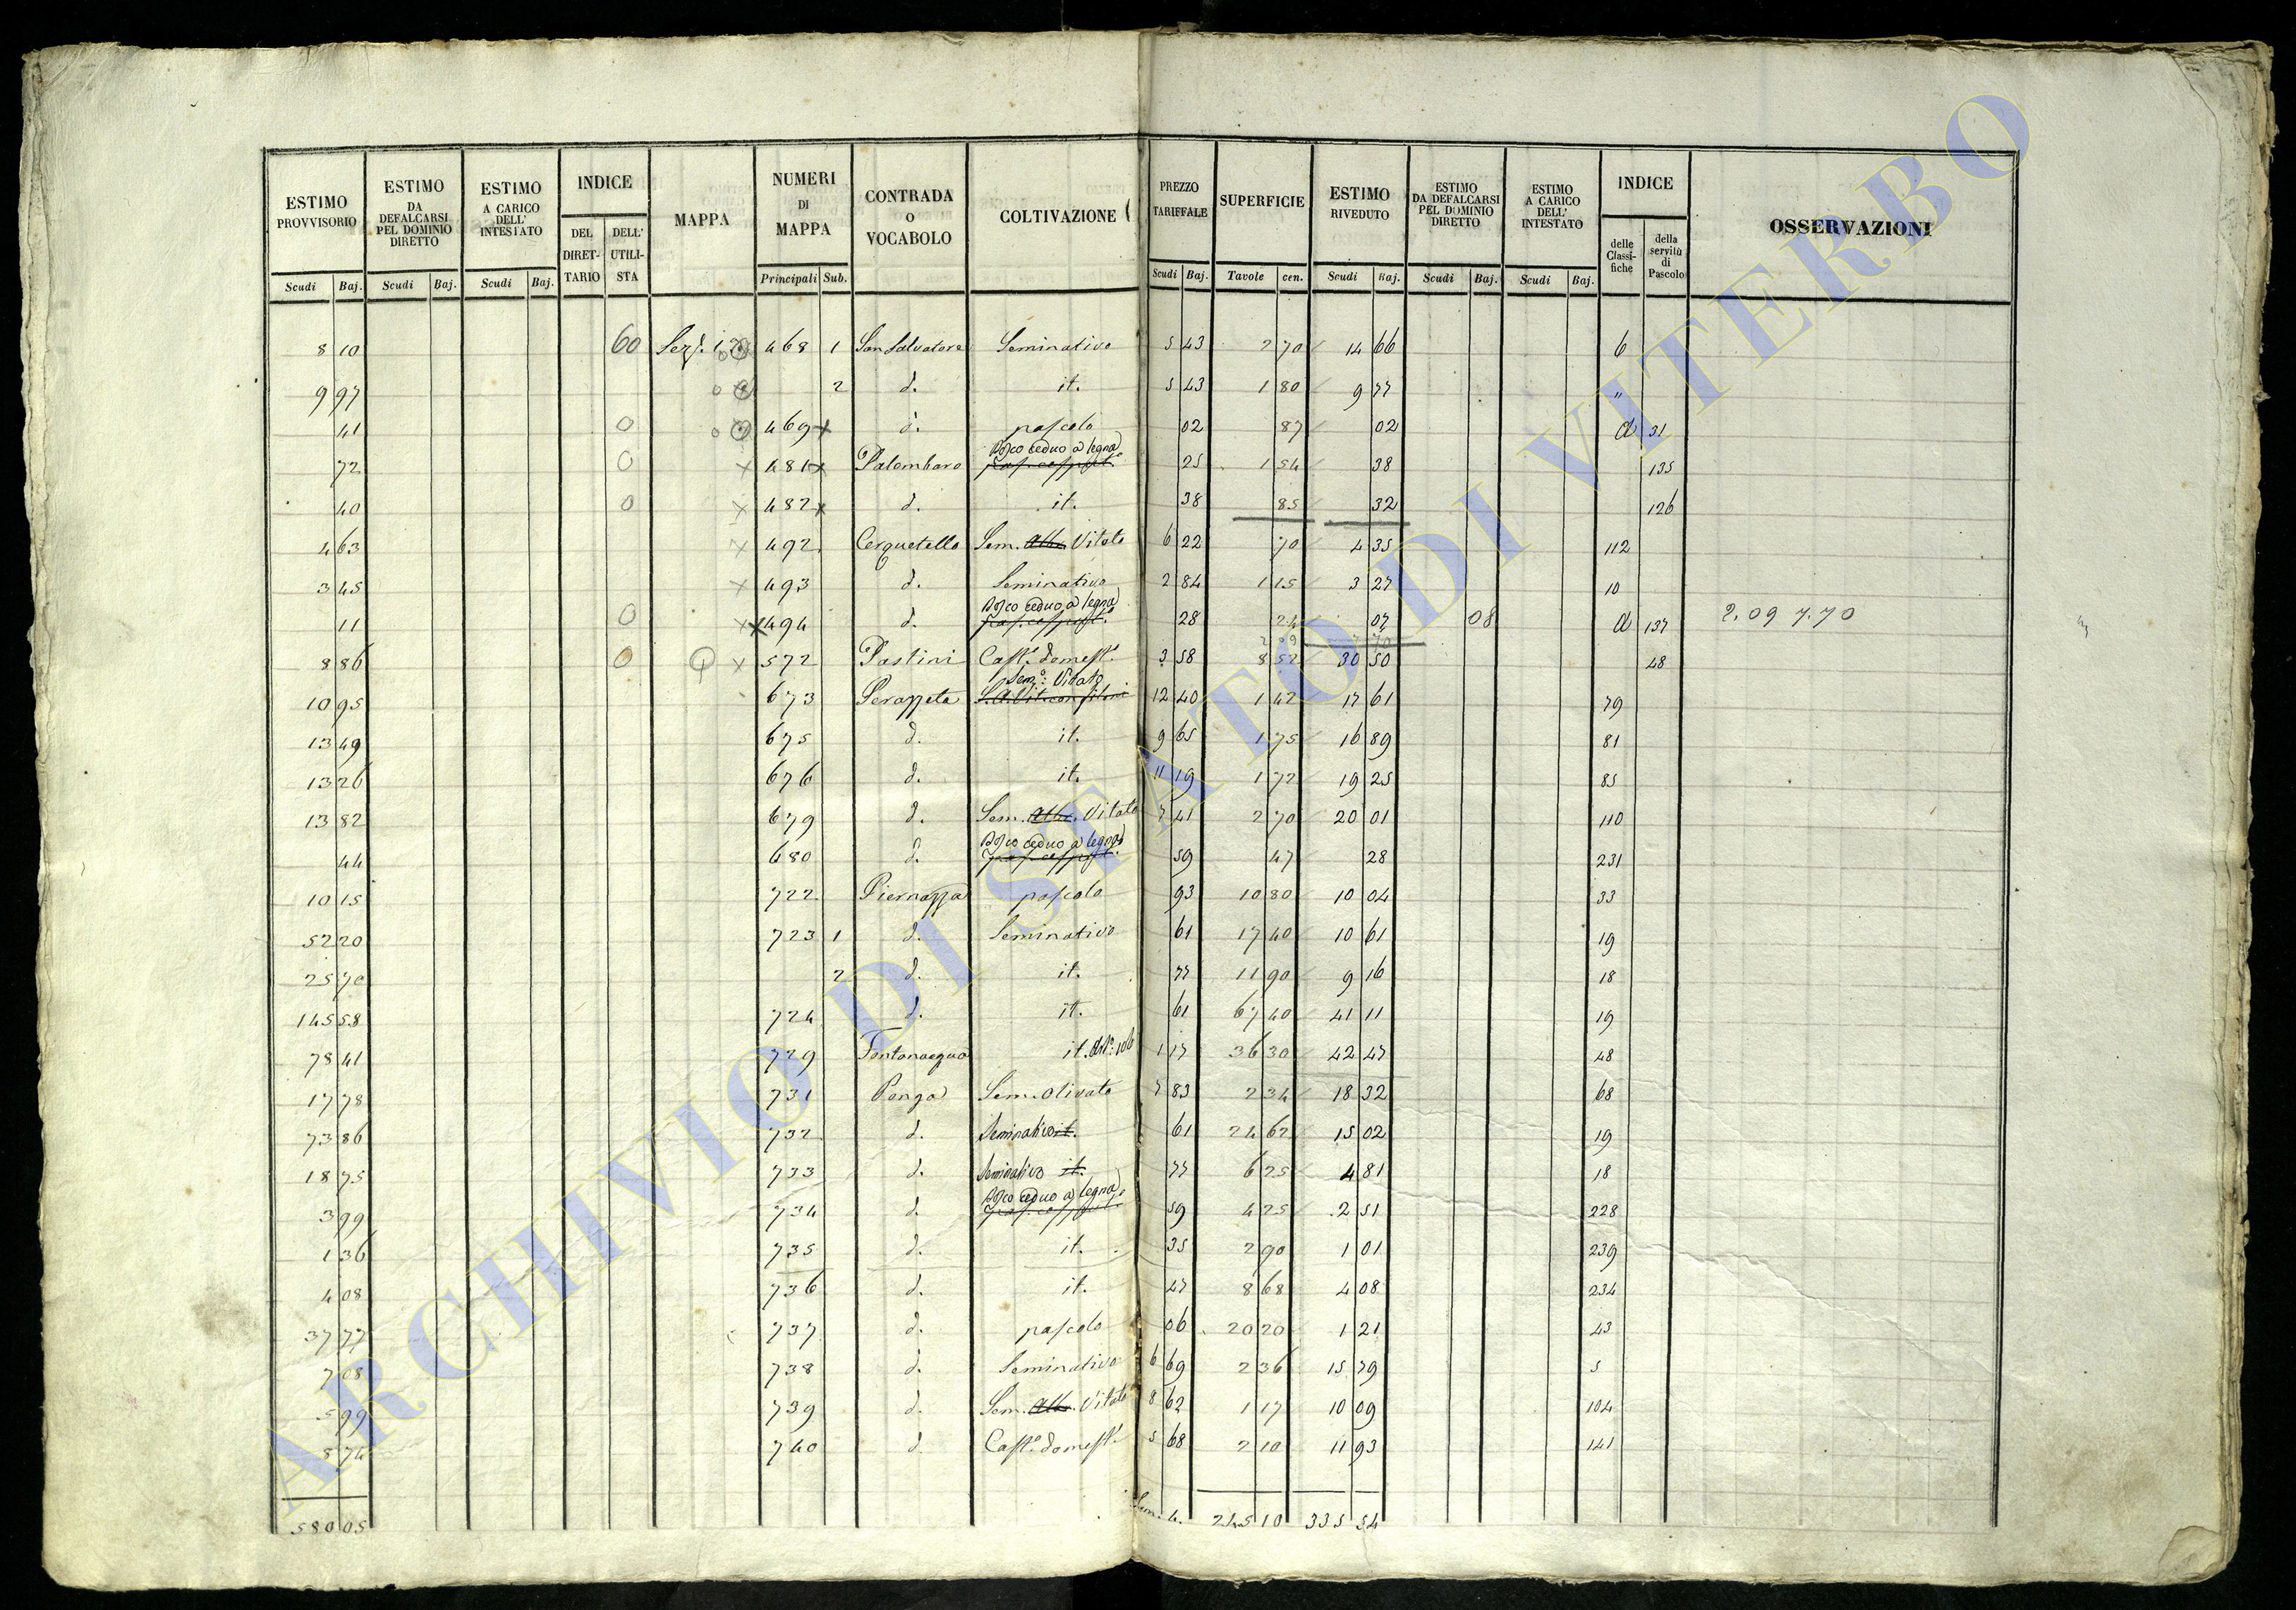 ESTIMO PROVVISORIO | ESTIMO DA DEFALCARSI PEL DOMINIO DIRETTO | ESTIMO A CARICO DELL' INTESTATO | INDICE | MAPPA | NUMERI DI MAPPA | CONTRADA O VOCABOLO | COLTIVAZIONE | PREZZO TARIFFALE | SUPERFICIE | ESTIMO RIVEDUTO | ESTIMO DA DEFALCARSI PEL DOMINIO DIRETTO | ESTIMO A CARICO DELL' INTESTATO | INDICE | OSSERVAZIONI
DEL DIRETTARIO | DELL' UTILISTA | delle Classifiche | della servitù di Pascolo
Scudi | Baj. | Scudi | Baj. | Scudi | Baj. | Principali | Sub. | Scudi | Baj. | Tavole | cen. | Scudi | Baj. | Scudi | Baj. | Scudi | Baj.
8 10 | 60 | Sez. 12 | 468 | 1 | San Salvatore | Seminativo | 5 43 | 2 70 | 14 66 | 6
9 97 | 2 | d. | it. | 5 43 | 1 80 | 9 77 | "
41 | 0 | 469 x | d. | pascolo | 02 | 87 | 02 | d | 31
72 | 0 | x | 481 x | Palombaro | Bosco ceduo a legna | 25 | 1 54 | 38 | 135
40 | 0 | x | 482 x | d. | it. | 38 | 85 | 32 | 126
4 63 | x | 492 | Cerquetello | Sem. Alb. Vitato | 6 22 | 70 | 4 35 | 112
3 45 | x | 493 | d. | Seminativo | 2 84 | 1 15 | 3 27 | 10
11 | 0 | x x | 494 | d. | Bosco ceduo a legna | 28 | 24 | 07 | 08 | d | 137 | 2.09 7.70
8 86 | 0 | x | 572 | Pastini | Cast. domest. | 3 58 | 8 52 | 30 50 | 48
10 95 | 673 | Perazzeta | Sem. Vitato | 12 40 | 1 42 | 17 61 | 79
13 49 | 675 | d. | it. | 9 65 | 1 75 | 16 89 | 81
13 26 | 676 | d. | it. | 11 19 | 1 72 | 19 25 | 85
13 82 | 679 | d. | Sem. Alb. Vitato | 7 41 | 2 70 | 20 01 | 110
44 | 680 | d. | Bosco ceduo a legna | 59 | 47 | 28 | 231
10 15 | 722 | Piernazza | pascolo | 93 | 10 80 | 10 04 | 33
52 20 | 723 | 1 | d. | Seminativo | 61 | 17 40 | 10 61 | 19
25 70 | 2 | d. | it. | 77 | 11 90 | 9 16 | 18
145 58 | 724 | d. | it. | 61 | 67 40 | 41 11 | 19
78 41 | 729 | Fontanacqua | it. | 1 17 | 36 30 | 42 47 | 48
17 78 | 731 | Ponza | Sem. olivato | 7 83 | 2 34 | 18 32 | 68
73 86 | 732 | d. | Seminativo it. | 61 | 24 62 | 15 02 | 19
18 75 | 733 | d. | Seminativo it. | 77 | 6 25 | 4 81 | 18
3 99 | 734 | d. | Bosco ceduo a legna | 59 | 4 25 | 2 51 | 228
1 36 | 735 | d. | it. | 35 | 2 90 | 1 01 | 239
4 08 | 736 | d. | it. | 47 | 8 68 | 4 08 | 234
37 77 | 737 | d. | pascolo | 06 | 20 20 | 1 21 | 43
7 08 | 738 | d. | Seminativo | 6 69 | 2 36 | 15 79 | 5
5 99 | 739 | d. | Sem. Alb. Vitato | 8 62 | 1 17 | 10 09 | 104
8 74 | 740 | d. | Cast. domest. | 5 68 | 2 10 | 11 93 | 141
580 05 | 245 10 | 335 54
ARCHIVIO DI STATO DI VITERBO